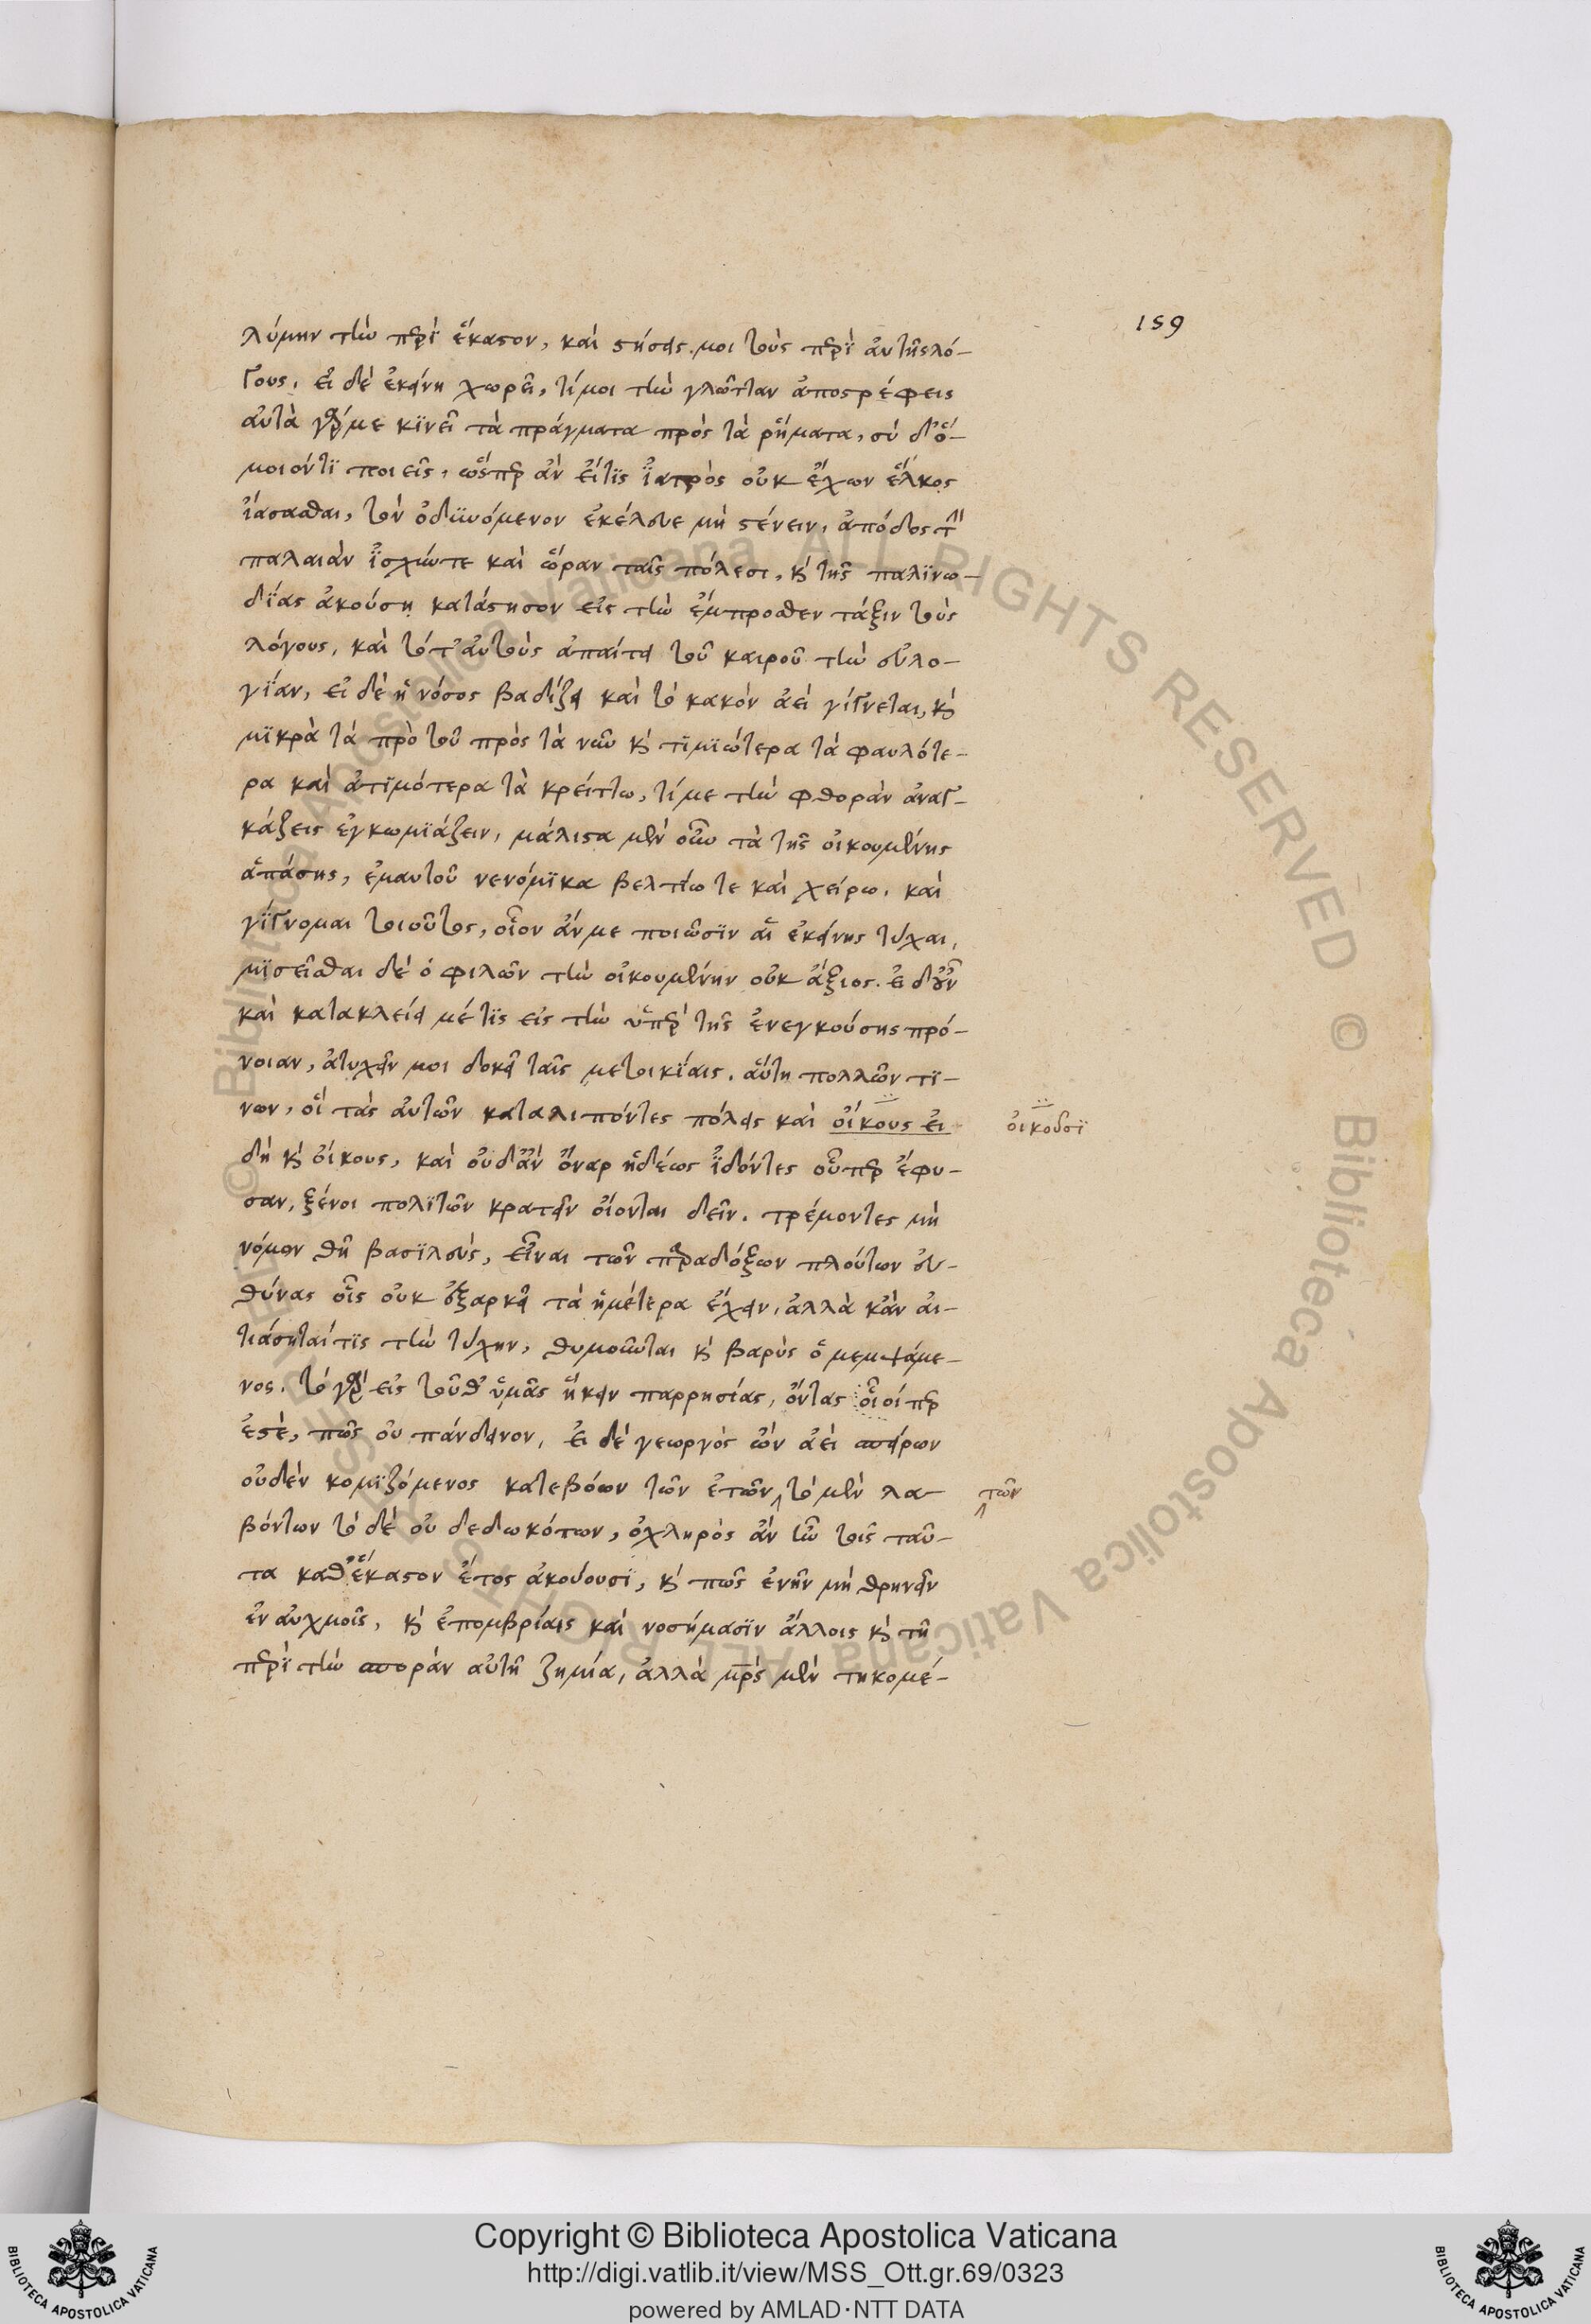 159
λύμην τὴν περὶ ἕκαστον, καὶ στήσεις μοι τοὺς περὶ αὐτῆς λό-
γους, εἰ δὲ ἐκείνη χωρεῖ, τί μοι τὴν γλῶτταν ἀποστρέφεις
αὐτὰ γάρ με κϊνεῖ τὰ πράγματα πρὸς τὰ ῥήματα, σὺ δ' ὅ-
μοιόν τι ποιεῖς, ὥσπερ ἂν εἴ τις ἰατρὸς οὐκ ἔχων ἕλκος
ἰάσασθαι, τὸν ὀδϋνόμενον ἐκέλευε μὴ στένειν, ἀπόδος τὴν
παλαιὰν ἰσχύν τε καὶ ὥραν ταῖς πόλεσι, καὶ τῆς παλϊνω-
δίας ἀκούσῃ κατάστησον εἰς τὴν ἔμπροσθεν τάξιν τοὺς
λόγους, καὶ τότ' αὐτοὺς ἀπαίτει τοῦ καιροῦ τὴν εὐλο-
γίαν, εἰ δὲ ἡ νόσος βαδίζει καὶ τὸ κακὸν ἀεὶ γίγνεται, καὶ
μϊκρὰ τὰ πρὸ τοῦ πρὸς τὰ νῦν καὶ τϊμϊώτερα τὰ φαυλότε-
ρα καὶ ἀτϊμότερα τὰ κρείττω, τί με τὴν φθορὰν ἀναγ-
κάζεις ἐγκωμϊάζειν, μάλιστα μὲν οὖν τὰ τῆς οἰκουμένης
ἁπάσης, ἐμαυτοῦ νενόμϊκα βελτίω τε καὶ χείρω. καὶ
γίγνομαι τοιοῦτος, οἷον ἄν με ποιῶσϊν αἱ ἐκείνης τύχαι,
μϊσεῖσθαι δὲ ὁ φιλῶν τὴν οἰκουμένην οὐκ ἄξιος. εἰ δ' οὖν
καὶ κατακλείει μέ τϊς εἰς τὴν ὑπὲρ τῆς ἐνεγκούσης πρό-
νοιαν, ἀτυχεῖν μοι δοκεῖ ταῖς μετοικίαις. αὕτη πολλῶν τϊ-
νων, οἳ τὰς αὐτῶν καταλιπόντες πόλεις καὶ οἴκους εἰ
οἰκοῦσϊ
δὴ καὶ οἴκους, καὶ οὐδ' ἂν ὄναρ ἡδέως ἰδόντες οὗπερ ἔφυ-
σαν, ξένοι πολϊτῶν κρατεῖν οἴονται δεῖν. τρέμοντες μὴ
νόμον θῇ βασϊλεὺς, εἶναι τῶν παραδόξων πλούτων εὐ-
θύνας οἷς οὐκ ἐξαρκεῖ τὰ ἡμέτερα ἔχειν, ἀλλὰ κἂν αἰ-
τιάσηταί τϊς τὴν τύχην, θυμοῦνται καὶ βαρὺς ὁ μεμψάμε-
νος. τὸ γὰρ εἰς τοῦθ' ὑμᾶς ἥκειν παρρησίας, ὄντας οἷοί περ
ἐστὲ, πῶς οὐ πάνδεινον, εἰ δὲ γεωργὸς ὢν ἀεὶ σπείρων
οὐδὲν κομϊζόμενος κατεβόων τῶν ἐτῶν, τὸ μὲν λα-
τῶν
βόντων τὸ δὲ οὐ δεδωκότων, ὀχληρὸς ἂν ἦν τοῖς ταῦ-
τα καθ' ἕκαστον ἔτος ἀκούουσϊ, καὶ πῶς ἐνῆν μὴ θρηνεῖν
ἐν αὐχμοῖς, καὶ ἐπομβρίαις καὶ νοσήμασϊν ἄλλοις καὶ τῇ
περὶ τὴν σπορὰν αὐτῇ ζημία, ἀλλὰ μητρὸς μὲν τηκομέ-
Copyright © Biblioteca Apostolica Vaticana
http://digi.vatlib.it/view/MSS_Ott.gr.69/0323
powered by AMLAD·NTT DATA
BIBLIOTECA APOSTOLICA VATICANA
BIBLIOTECA APOSTOLICA VATICANA